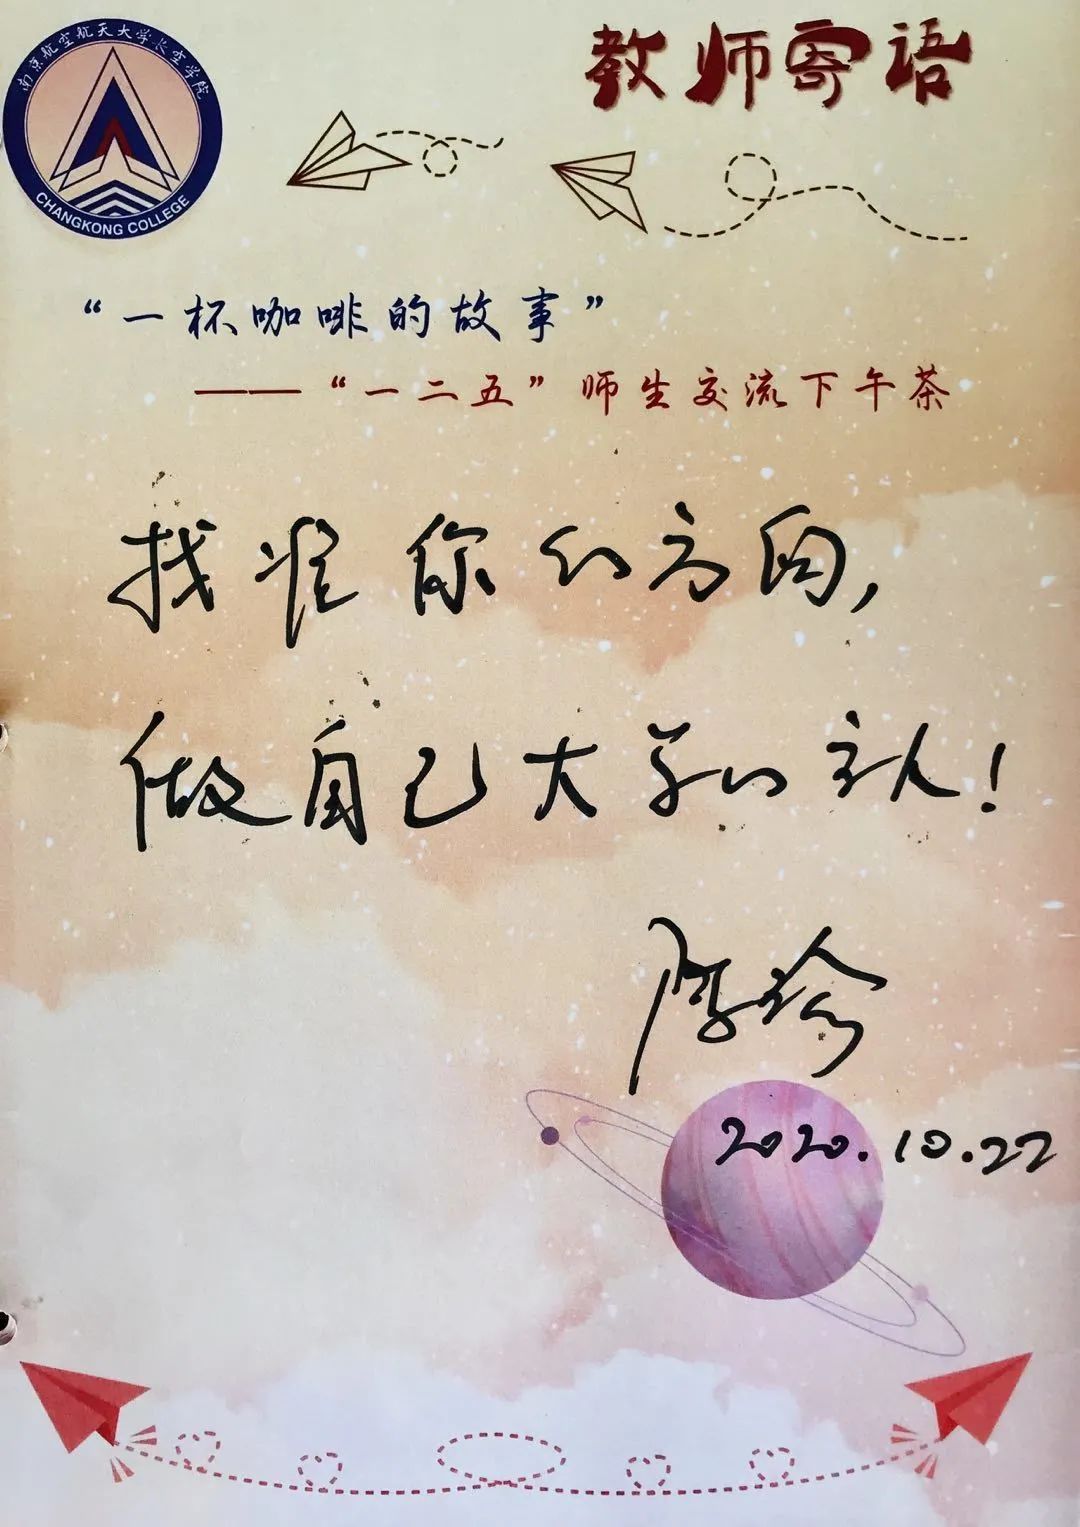 南京航空航天大学长空学院
CHANGKONG COLLEGE
教师寄语
“一杯咖啡的故事”
——“一二五”师生交流下午茶
找准你的方向,
做自己大学的主人!
珍
2020.10.22